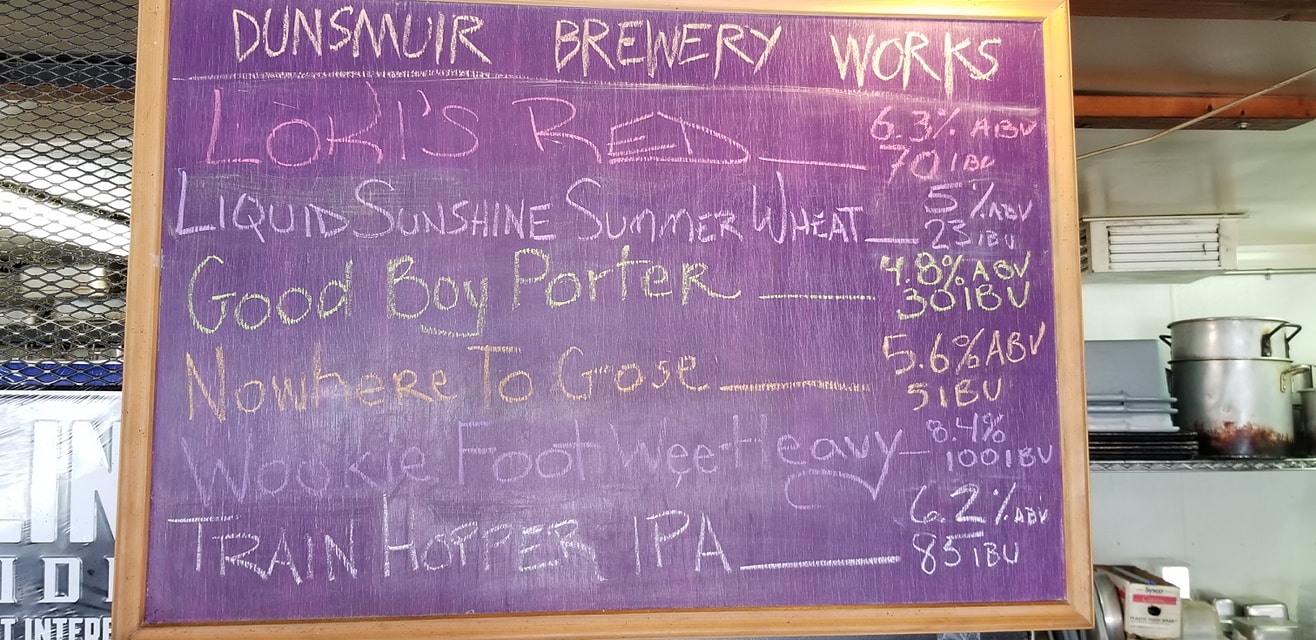 DUNSMUIR BREWERY WORKS
LOKI'S RED 6.3% ABV
70 IBU
LIQUID SUNSHINE SUMMER WHEAT 5% ABV
23 IBU
Good Boy Porter 4.8% ABV
30 IBU
Nowhere To Gose 5.6% ABV
5 IBU
Wookie Foot Wee Heavy 8.4%
100 IBU
TRAIN HOPPER IPA 6.2% ABV
85 IBU
LIN
IDI
T INTERE
Sysco